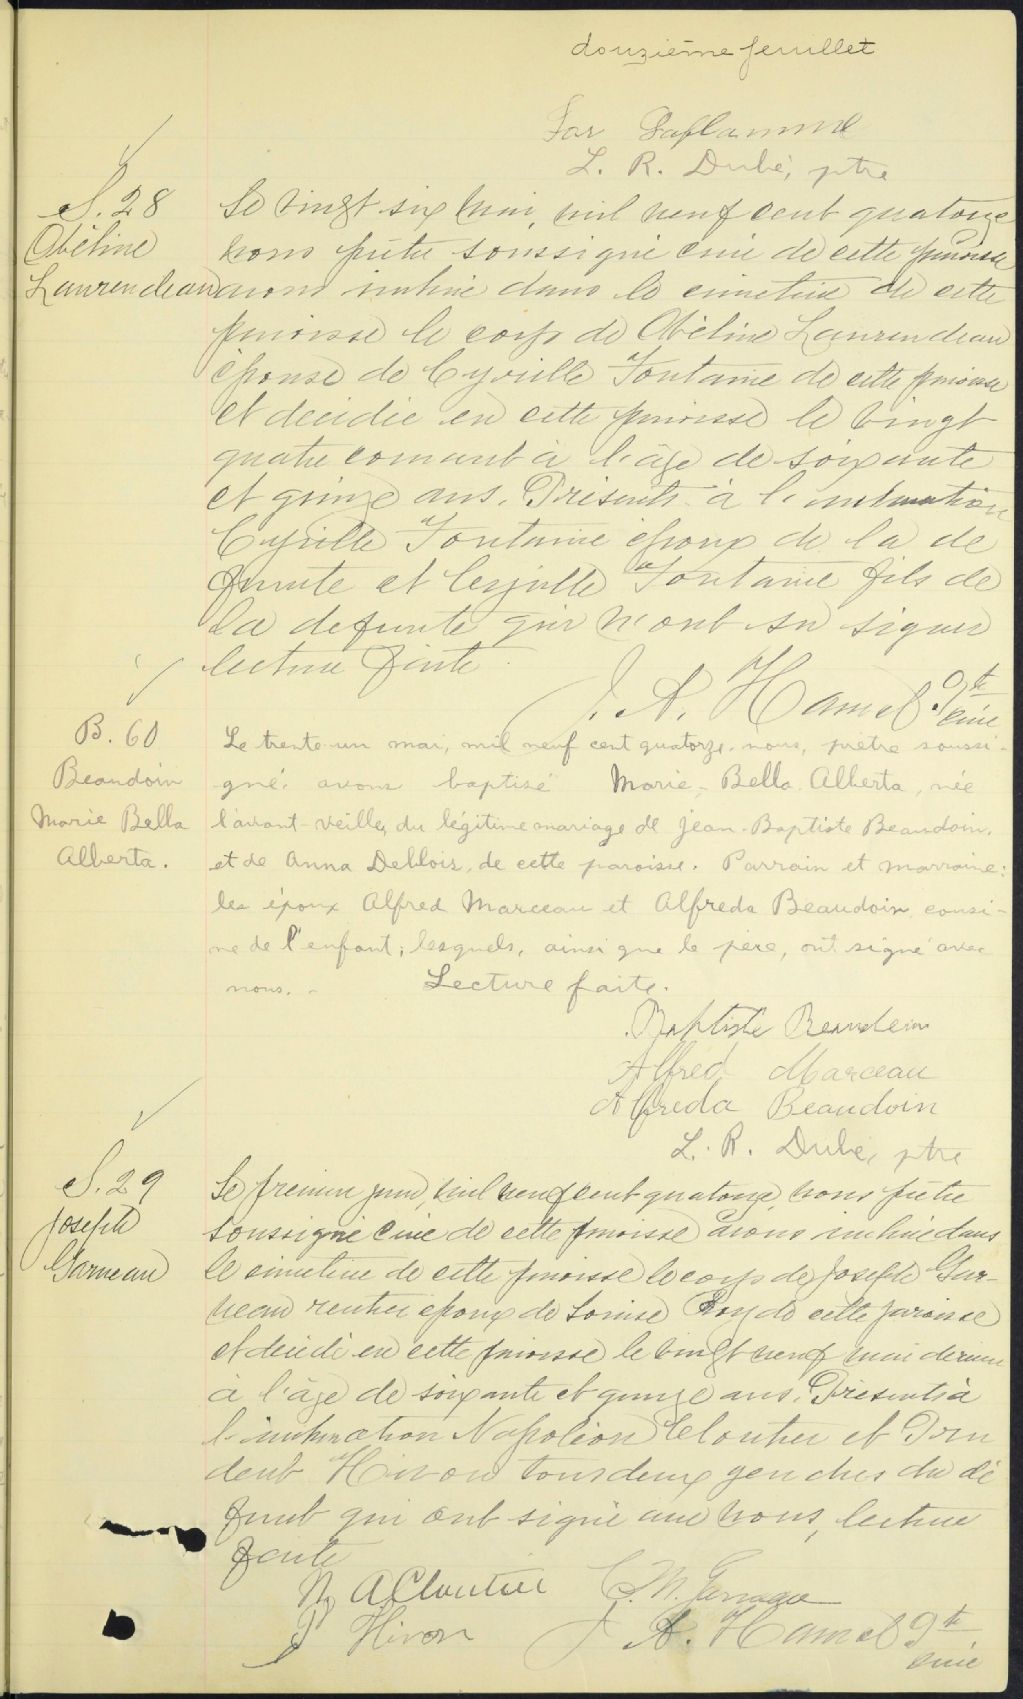 douzième feuillet
Laflamme
L. R. Dubé, ptre
S. 28
Obéline
Laurendeau
Le vingt six mai, mil neuf cent quatorze
nous prêtre soussigné curé de cette paroisse
avons inhumé dans le cimetière de cette
paroisse le corps de Obéline Laurendeau
épouse de Cyrille Fontaine de cette paroisse
et décédée en cette paroisse le vingt
quatre courant à l'âge de soixante
et quinze ans. Présents à l'inhumation
Cyrille Fontaine époux de la dé
funte et Cyrille Fontaine fils de
la defunte qui n'ont su signer
lecture faite.
J. A. Hamel Ptre
curé
B. 60
Beaudoin
Marie Bella
Alberta.
Le trente-un mai, mil neuf cent quatorze, nous, prêtre soussi-
gné, avons baptisé Marie, Bella, Alberta, née
l'avant-veille, du légitime mariage de Jean-Baptiste Beaudoin,
et de Anna Deblois, de cette paroisse. Parrain et marraine:
les époux Alfred Marceau et Alfreda Beaudoin, cousi-
ne de l'enfant; lesquels, ainsi que le père, ont signé avec
nous. - Lecture faite.
Baptiste Beaudoin
Alfred Marceau
Alfreda Beaudoin
L. R. Dubé, ptre
S. 29
Joseph
Garneau
Le premier juin, mil neuf cent quatorze, nous prêtre
soussigné curé de cette paroisse avons inhumé dans
le cimetière de cette paroisse le corps de Joseph Gar-
neau rentier époux de Louise Roy de cette paroisse
et décédé en cette paroisse le vingt neuf mai dernier
à l'âge de soixante et quinze ans. Présents à
l'inhumation Napoléon Cloutier et Pru
dent Hivon tous deux gendres du dé
funt qui ont signé avec nous, lecture
faite
N. A Cloutier
P Hivon
J. A. Hamel Ptre
curé